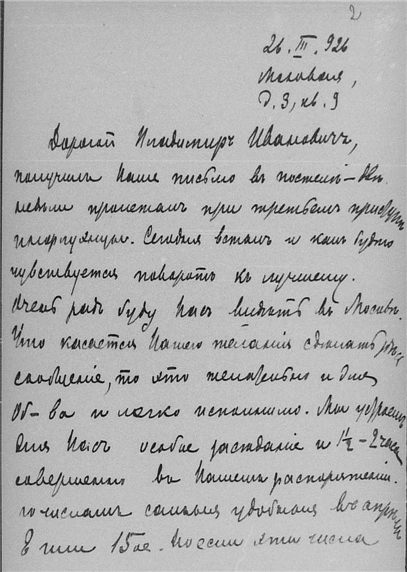 2
26. III. 926
Моховая,
д. 3, кв. 9
Дорогой Владимиръ Ивановичъ,
получилъ Ваше письмо въ постели —
при третьемъ приступѣ
. Сегодня всталъ и какъ будто
чувствуется поворотъ къ лучшему.
Очень радъ буду Васъ видѣть въ Москвѣ.
Что касается Вашего желанія сдѣлать
сообщеніе, то это желательно и для
Об-ва и легко исполнимо. Мы устроимъ
для Васъ особое засѣданіе и 1½ - 2 часа
совершенно въ Вашемъ распоряженіи.
числамъ самыя удобныя въ апрѣлѣ
8 или 15ое. Послѣ эти числа